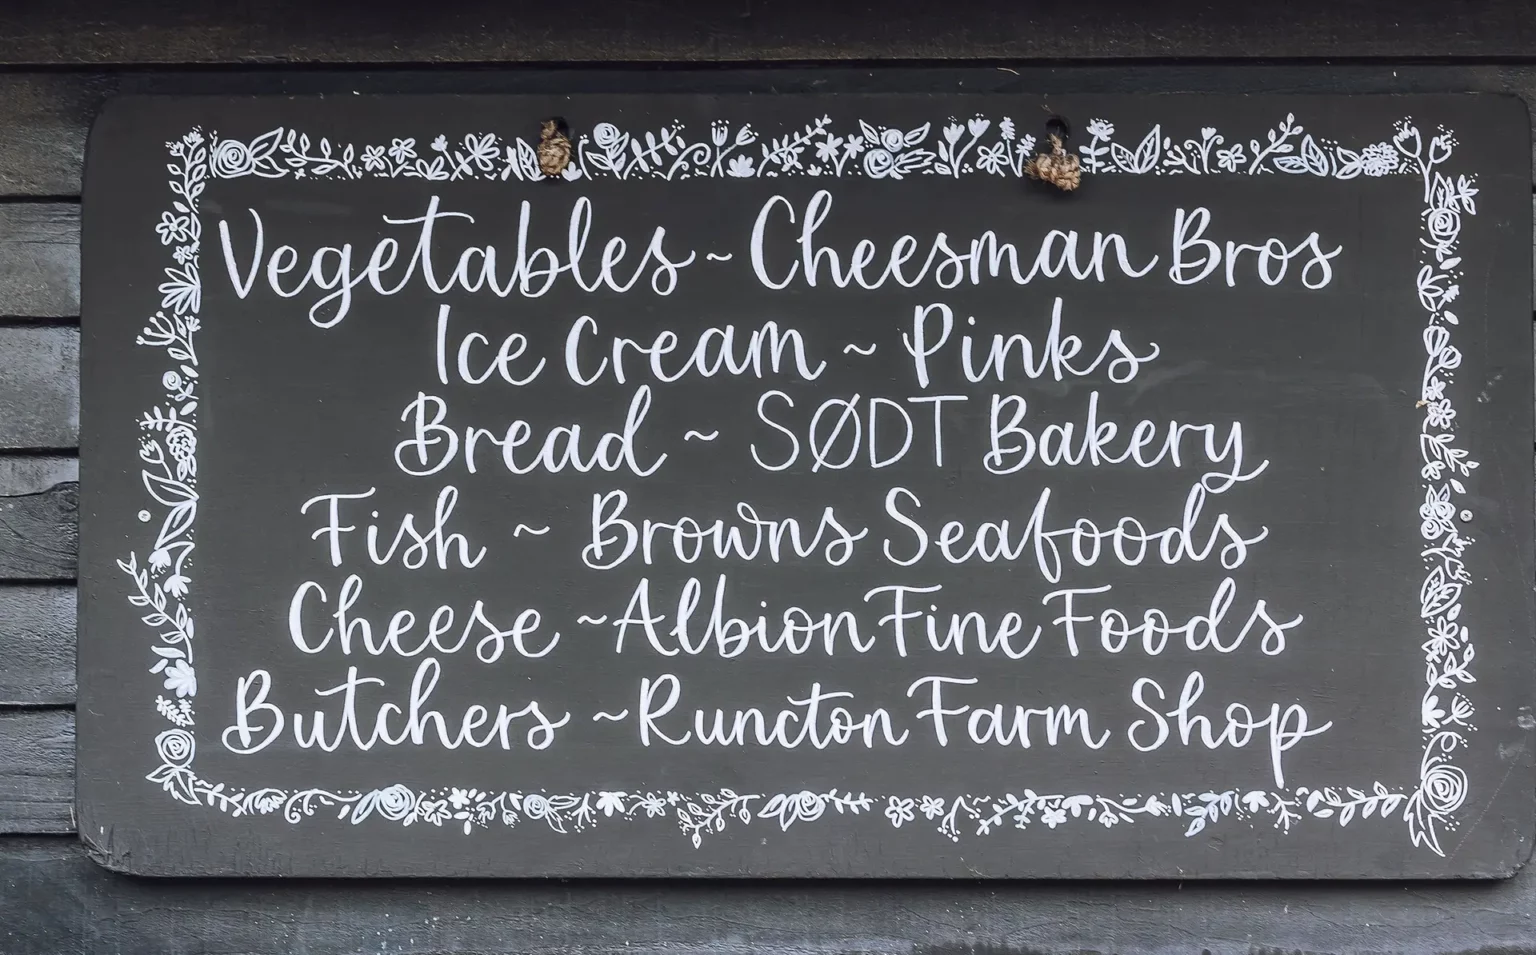 Vegetables ~ Cheesman Bros
Ice Cream ~ Pinks
Bread ~ SØDT Bakery
Fish ~ Browns Seafoods
Cheese ~ Albion Fine Foods
Butchers ~ Runcton Farm Shop